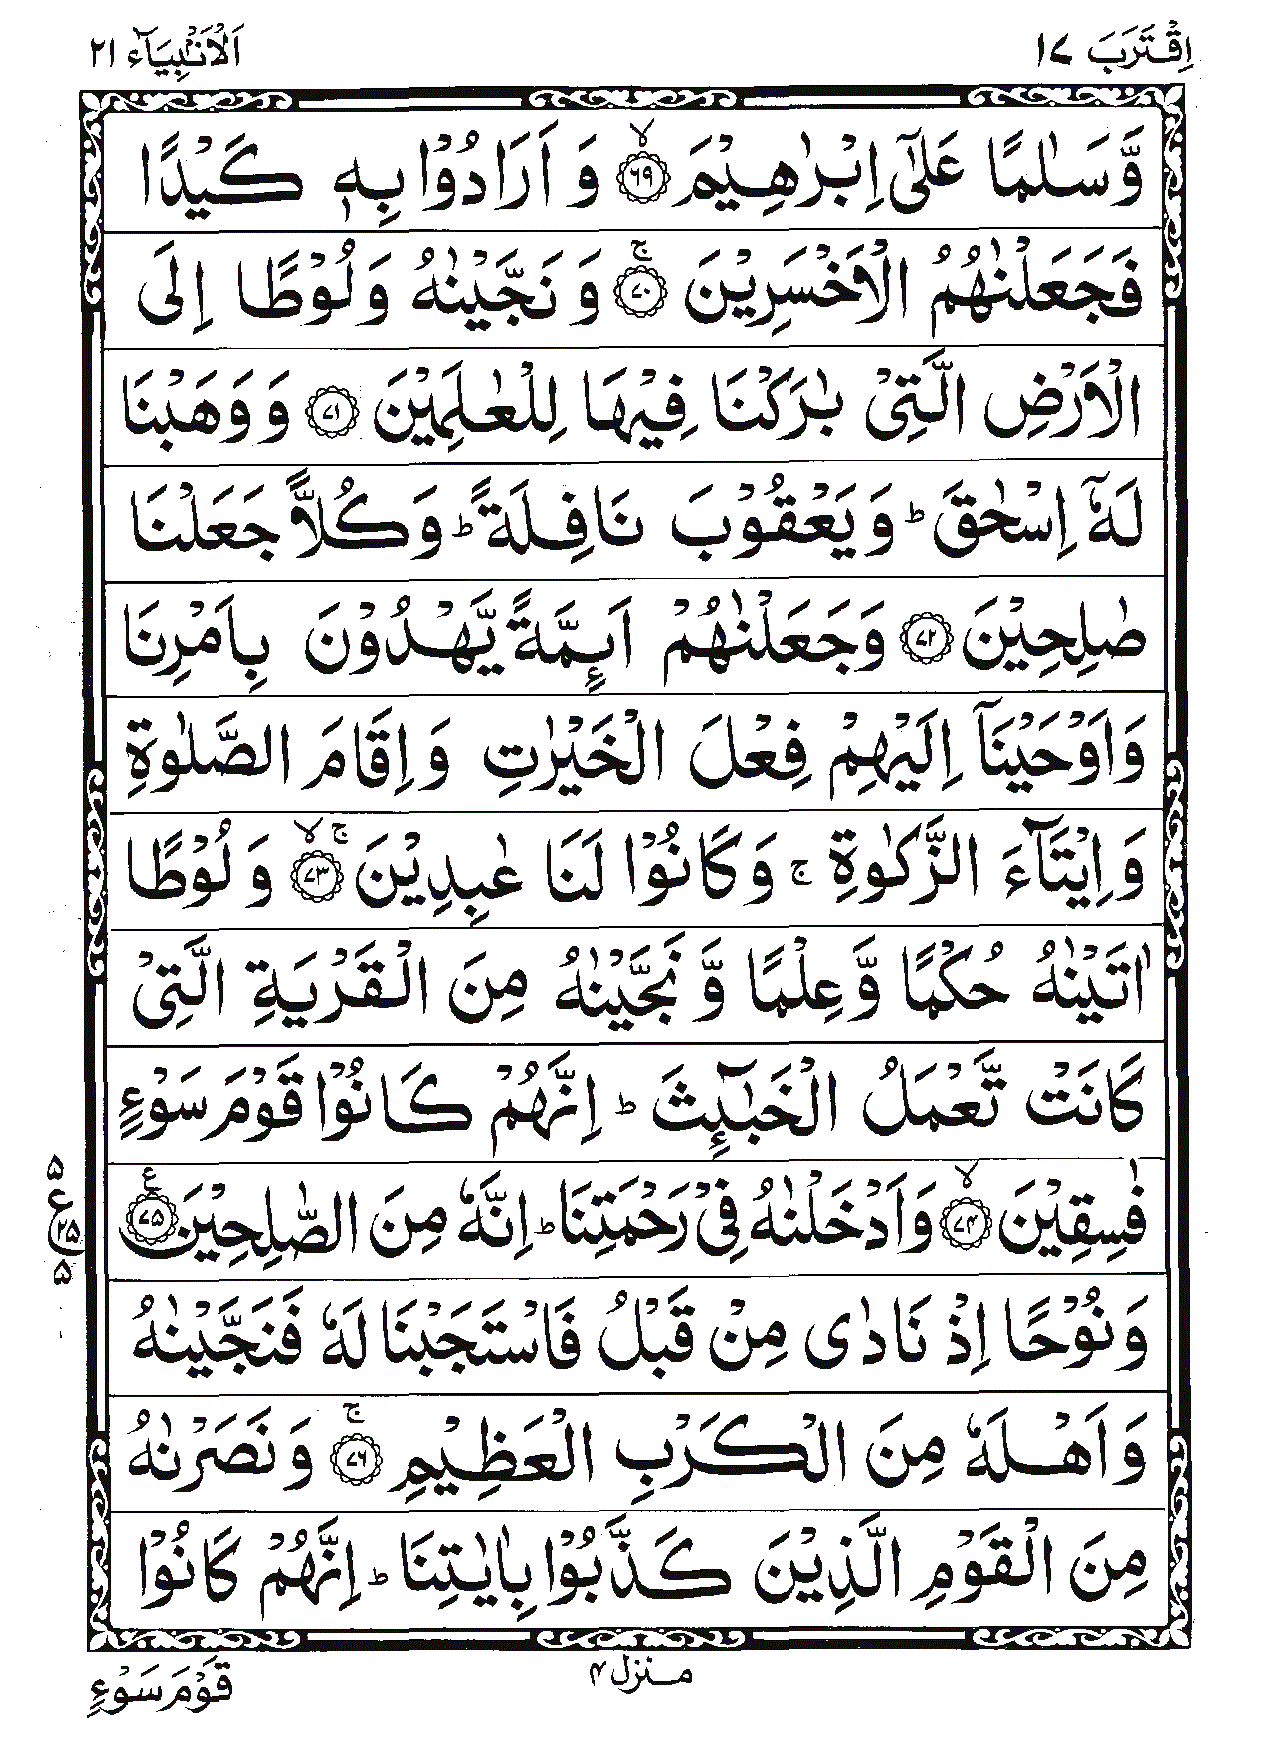 اِقْتَرَبَ ١٧
اَلْاَنْۢبِيَآء ٢١
وَّسَلٰمًا عَلٰٓى اِبْرٰهِيْمَ ۙ‏﴿۶۹﴾ وَ اَرَادُوْا بِهٖ كَيْدًا
فَجَعَلْنٰهُمُ الْاَخْسَرِيْنَ ۚ‏﴿۷۰﴾ وَ نَجَّيْنٰهُ وَ لُوْطًا اِلَى
الْاَرْضِ الَّتِىْ بٰرَكْنَا فِيْهَا لِلْعٰلَمِيْنَ ﴿۷۱﴾ وَ وَهَبْنَا
لَهٗۤ اِسْحٰقَ ؕ وَ يَعْقُوْبَ نَافِلَةً ؕ وَ كُلًّا جَعَلْنَا
صٰلِحِيْنَ ﴿۷۲﴾ وَجَعَلْنٰهُمْ اَئِمَّةً يَّهْدُوْنَ بِاَمْرِنَا
وَاَوْحَيْنَاۤ اِلَيْهِمْ فِعْلَ الْخَيْرٰتِ وَ اِقَامَ الصَّلٰوةِ
وَ اِيْتَآءَ الزَّكٰوةِ ۚ وَ كَانُوْا لَنَا عٰبِدِيْنَ ۚۙ‏﴿۷۳﴾ وَ لُوْطًا
اٰتَيْنٰهُ حُكْمًا وَّ عِلْمًا وَّ نَجَّيْنٰهُ مِنَ الْقَرْيَةِ الَّتِىْ
كَانَتْ تَّعْمَلُ الْخَبٰٓئِثَ ؕ اِنَّهُمْ كَانُوْا قَوْمَ سَوْءٍ
فٰسِقِيْنَ ۙ‏﴿۷۴﴾ وَاَدْخَلْنٰهُ فِىْ رَحْمَتِنَا ؕ اِنَّهٗ مِنَ الصّٰلِحِيْنَ ﴿۷۵﴾ ع
۵ ع ۲۵ ۵
وَ نُوْحًا اِذْ نَادٰى مِنْ قَبْلُ فَاسْتَجَبْنَا لَهٗ فَنَجَّيْنٰهُ
وَ اَهْلَهٗ مِنَ الْكَرْبِ الْعَظِيْمِ ۚ‏﴿۷۶﴾ وَ نَصَرْنٰهُ
مِنَ الْقَوْمِ الَّذِيْنَ كَذَّبُوْا بِاٰيٰتِنَا ؕ اِنَّهُمْ كَانُوْا
منزل ۴
قَوْمَ سَوْءٍ